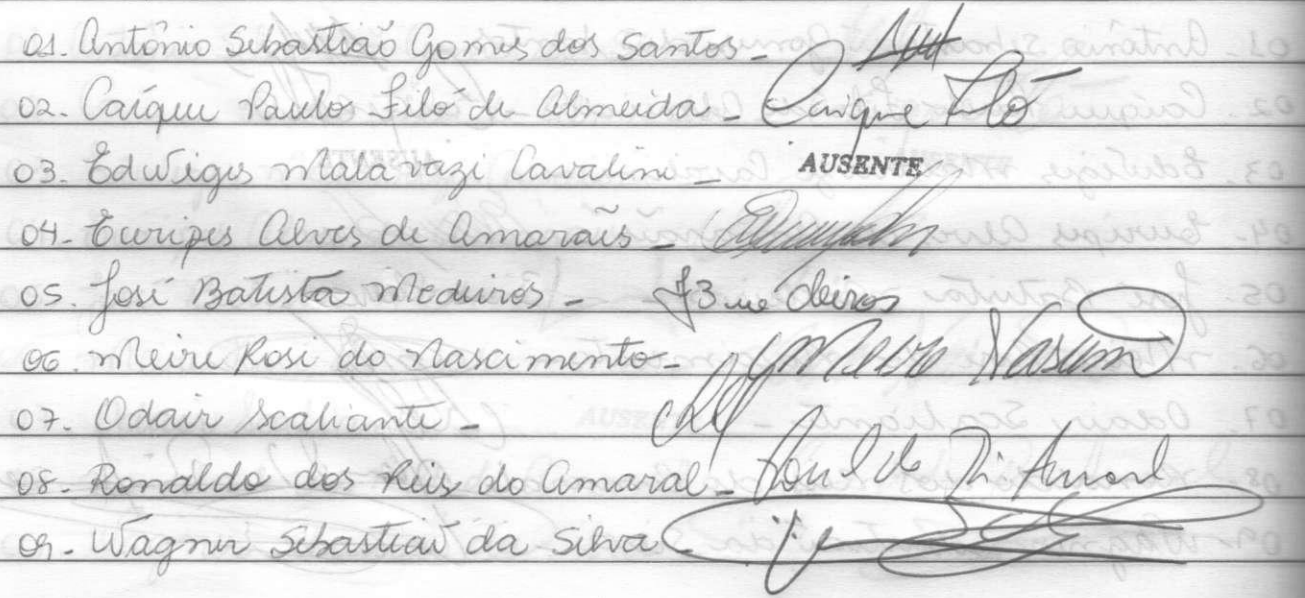 01. Antônio Sebastião Gomes dos Santos -
02. Caíque Paulos Filó de Almeida - Caíque Filó
03. Edwiges Malavazi Cavalini - AUSENTE
04. Euripes Alves de Amarais -
05. José Batista Medeiros - JB Medeiros
06. Meire Rosi do Nascimento -
07. Odair Scaliante -
08. Ronaldo dos Reis do Amaral -
09. Wagner Sebastião da Silva